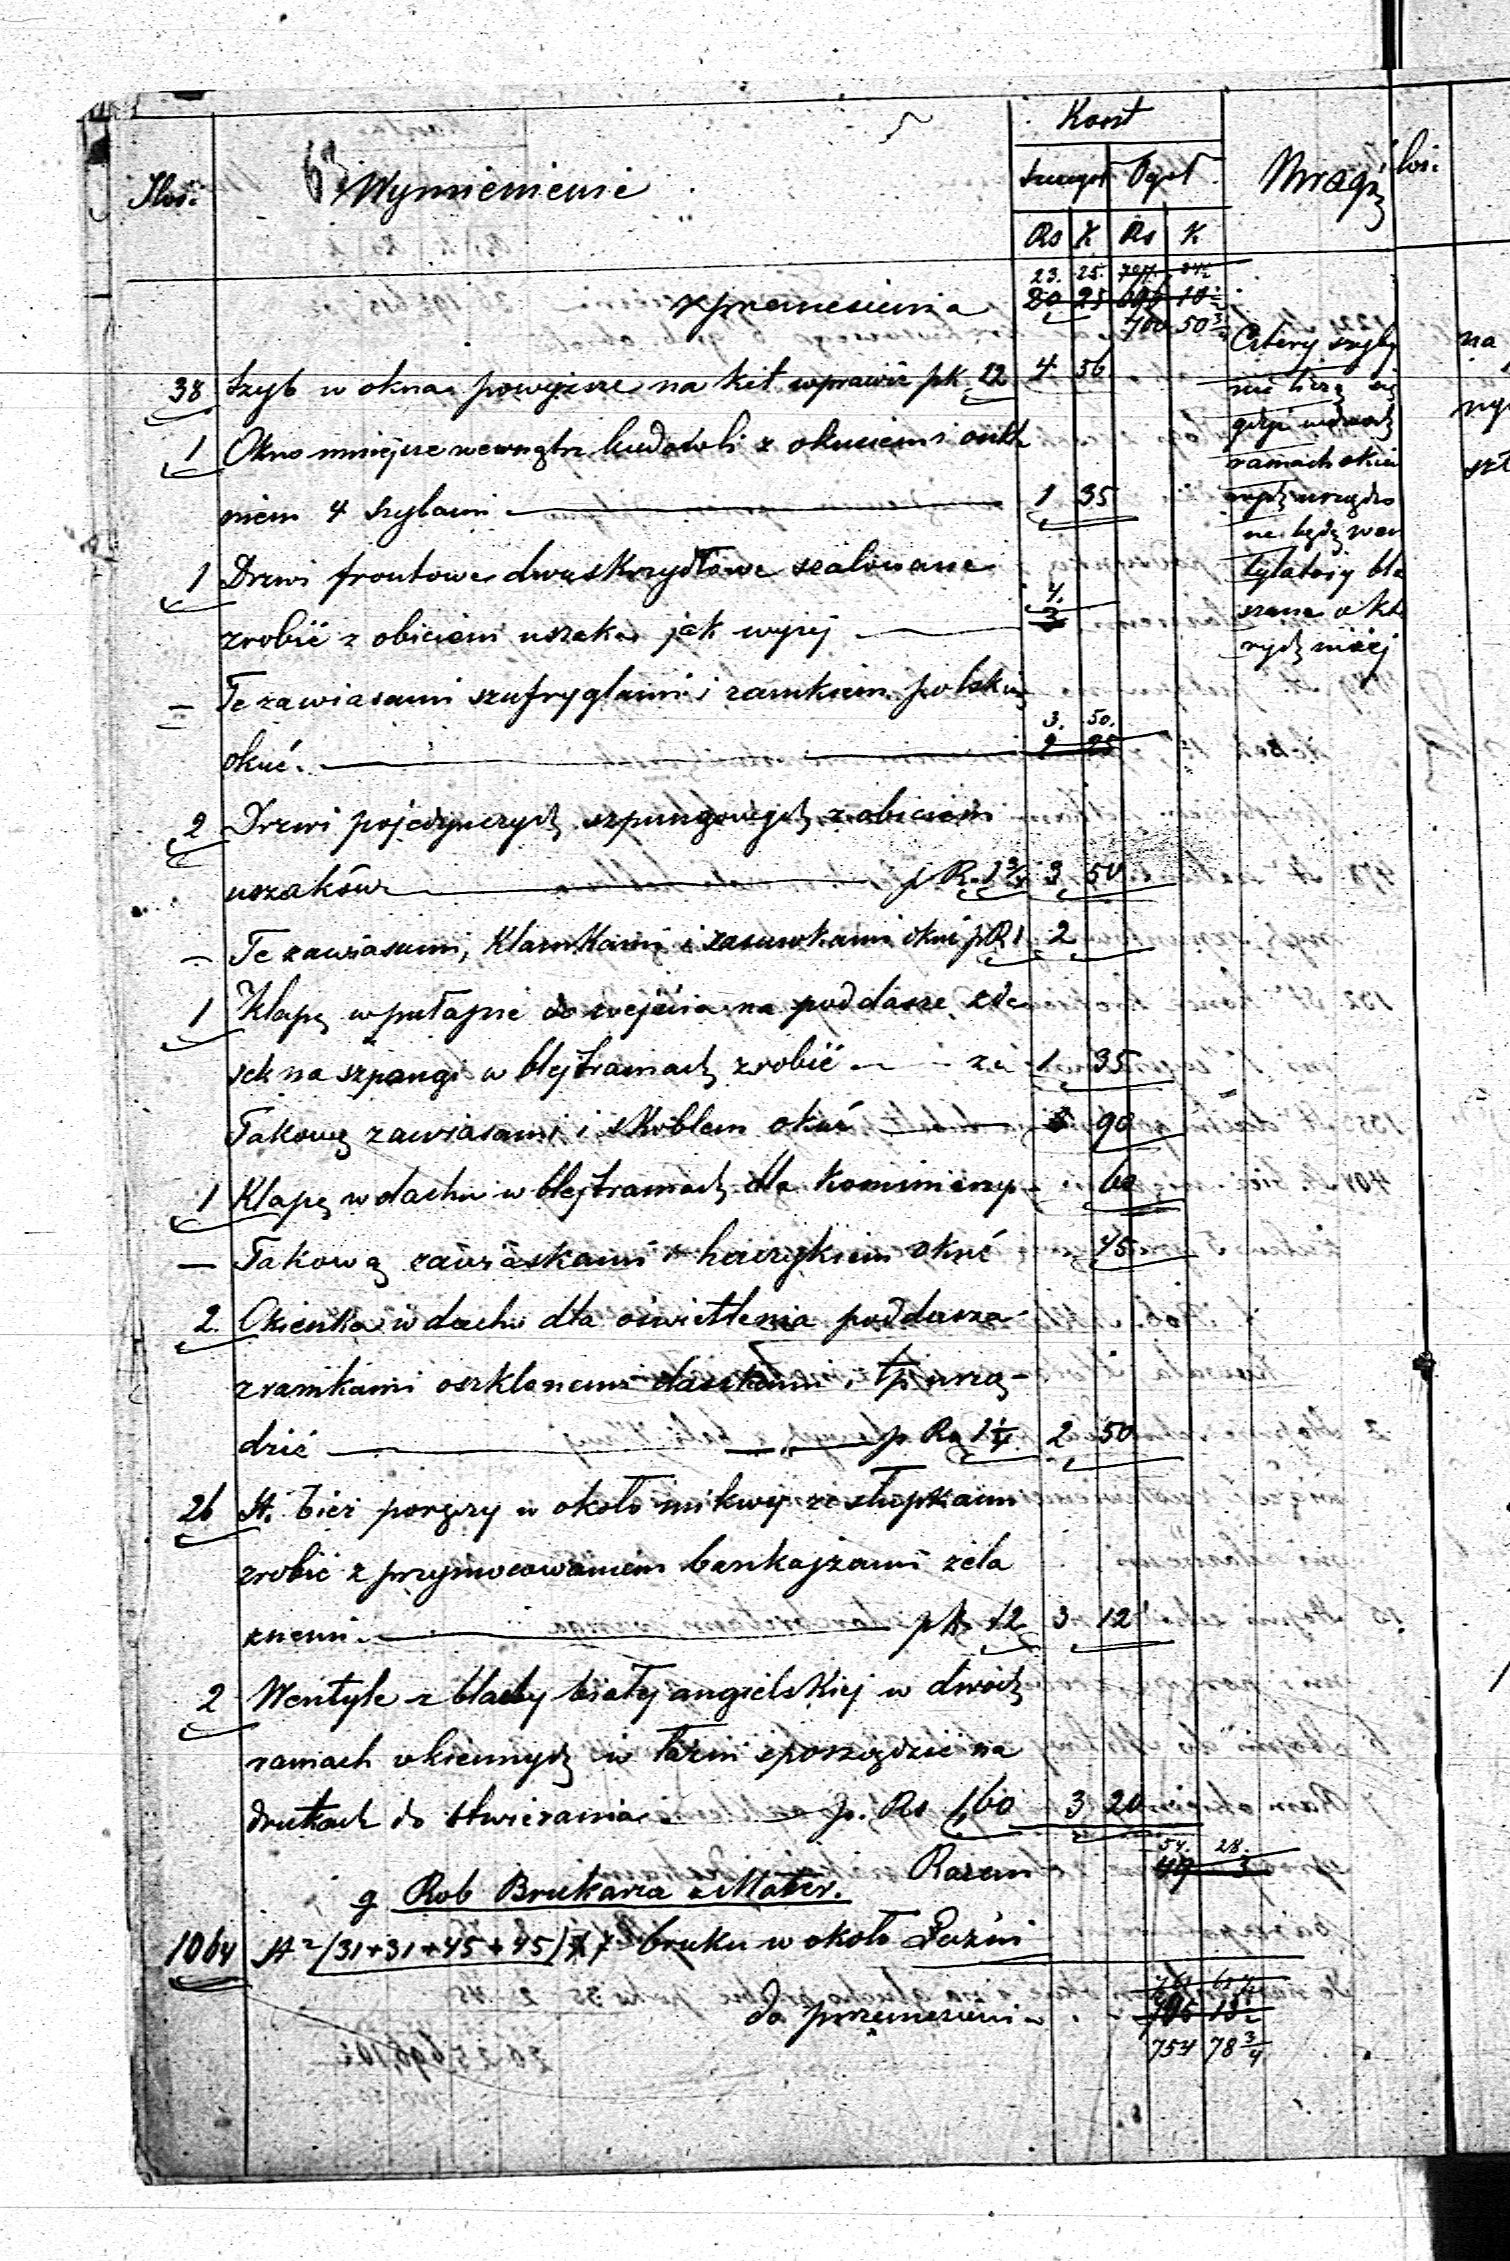 Koszt
Ilość Wymienienie Szczegół Ogół Uwagi
Rs K Rs K
23. 25.
z przeniesienia 20 25 696 10½
700 50¾
38 szyb w okna powyższe na kit wprawić p k. 12 4 56
1 Okno mniejsze wewnątrz budowli z okuciem i oszkle
niem 4 szybami 1 35
1 Drzwi frontowe dwuskrzydłowe szalowane
4.
zrobić z obiciem uszaków jak wyżej 3
— Te zawiasami szufryglami i zamkiem polskim
3. 50.
okuć. 2 25
2 Drzwi pojedynczych szpungowych z obiciem
uszaków p Rs 1¾ 3 50
— Te zawiasami, klamkami i zasuwkami okuć p R 1 2
1 Klapę w pułapie do wejścia na poddasze z de
sek na szpongi w blejtramach zrobić za 1 35
Takową zawiasami i skoblem okuć 90
1 Klapę w dachu w blejtramach dla kominiarzy 60
— Takową zawiaskami i haczykiem okuć 45
2. Okienka w dachu dla oświetlenia poddasza
z ramkami oszklonemi daszkami i tp urzą-
dzić p. Rs 1¼ 2 50
26 St. bież poręczy w około mikwy ze słupkami
zrobić z przymocowaniem bankajzami żela
znemi p k 12 3 12
2 Wentyle z blachy białej angielskiej w dwóch
ramach okiennych w łaźni sporządzić na
drutach do otwierania p. Rs 1,60 3 20
54. 28.
Razem 49 3
g Rob Brukarza z Mater.
1064 St² (31+31+45+45) 7 bruku w około Łaźni
do przeniesienia 745 13½
754 78¾
Cztery szyby
nie liczą się
gdyż w dwóch
ramach okien
nych urządzo
ne będą wen
tylatory bla
szane o któ
rych niżej